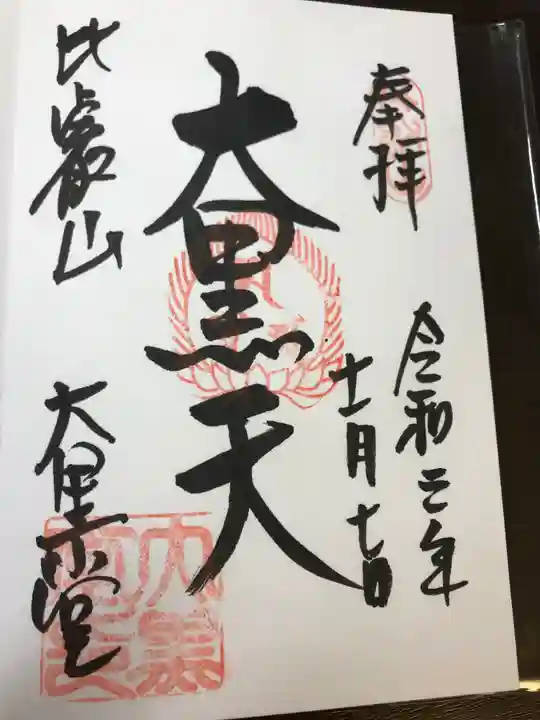 奉拝
令和二年
十一月七日
大黒天
比叡山
大黒堂